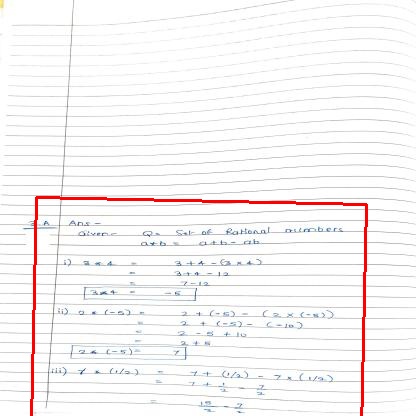 2.A Ans-
Given- Q= Set of Rational numbers
a*b = a+b-ab
i) 3*4 = 3+4-(3×4)
= 3+4-12
= 7-12
3*4 = -5
ii) 2*(-5) = 2+(-5)-(2×(-5))
= 2+(-5)-(-10)
= 2-5+10
= 2+5
2*(-5)= 7
iii) 7*(1/2) = 7+(1/2)-7×(1/2)
= 7+1/2-7/2
= 15/2-7/2